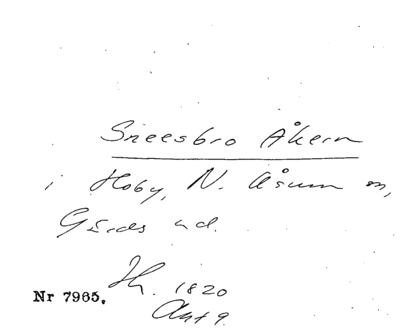 Sneesbro Åkern
i Hoby, N. Åsum sn,
Gärds hd.
Lh. 1820
Akt 9.
Nr 7965.